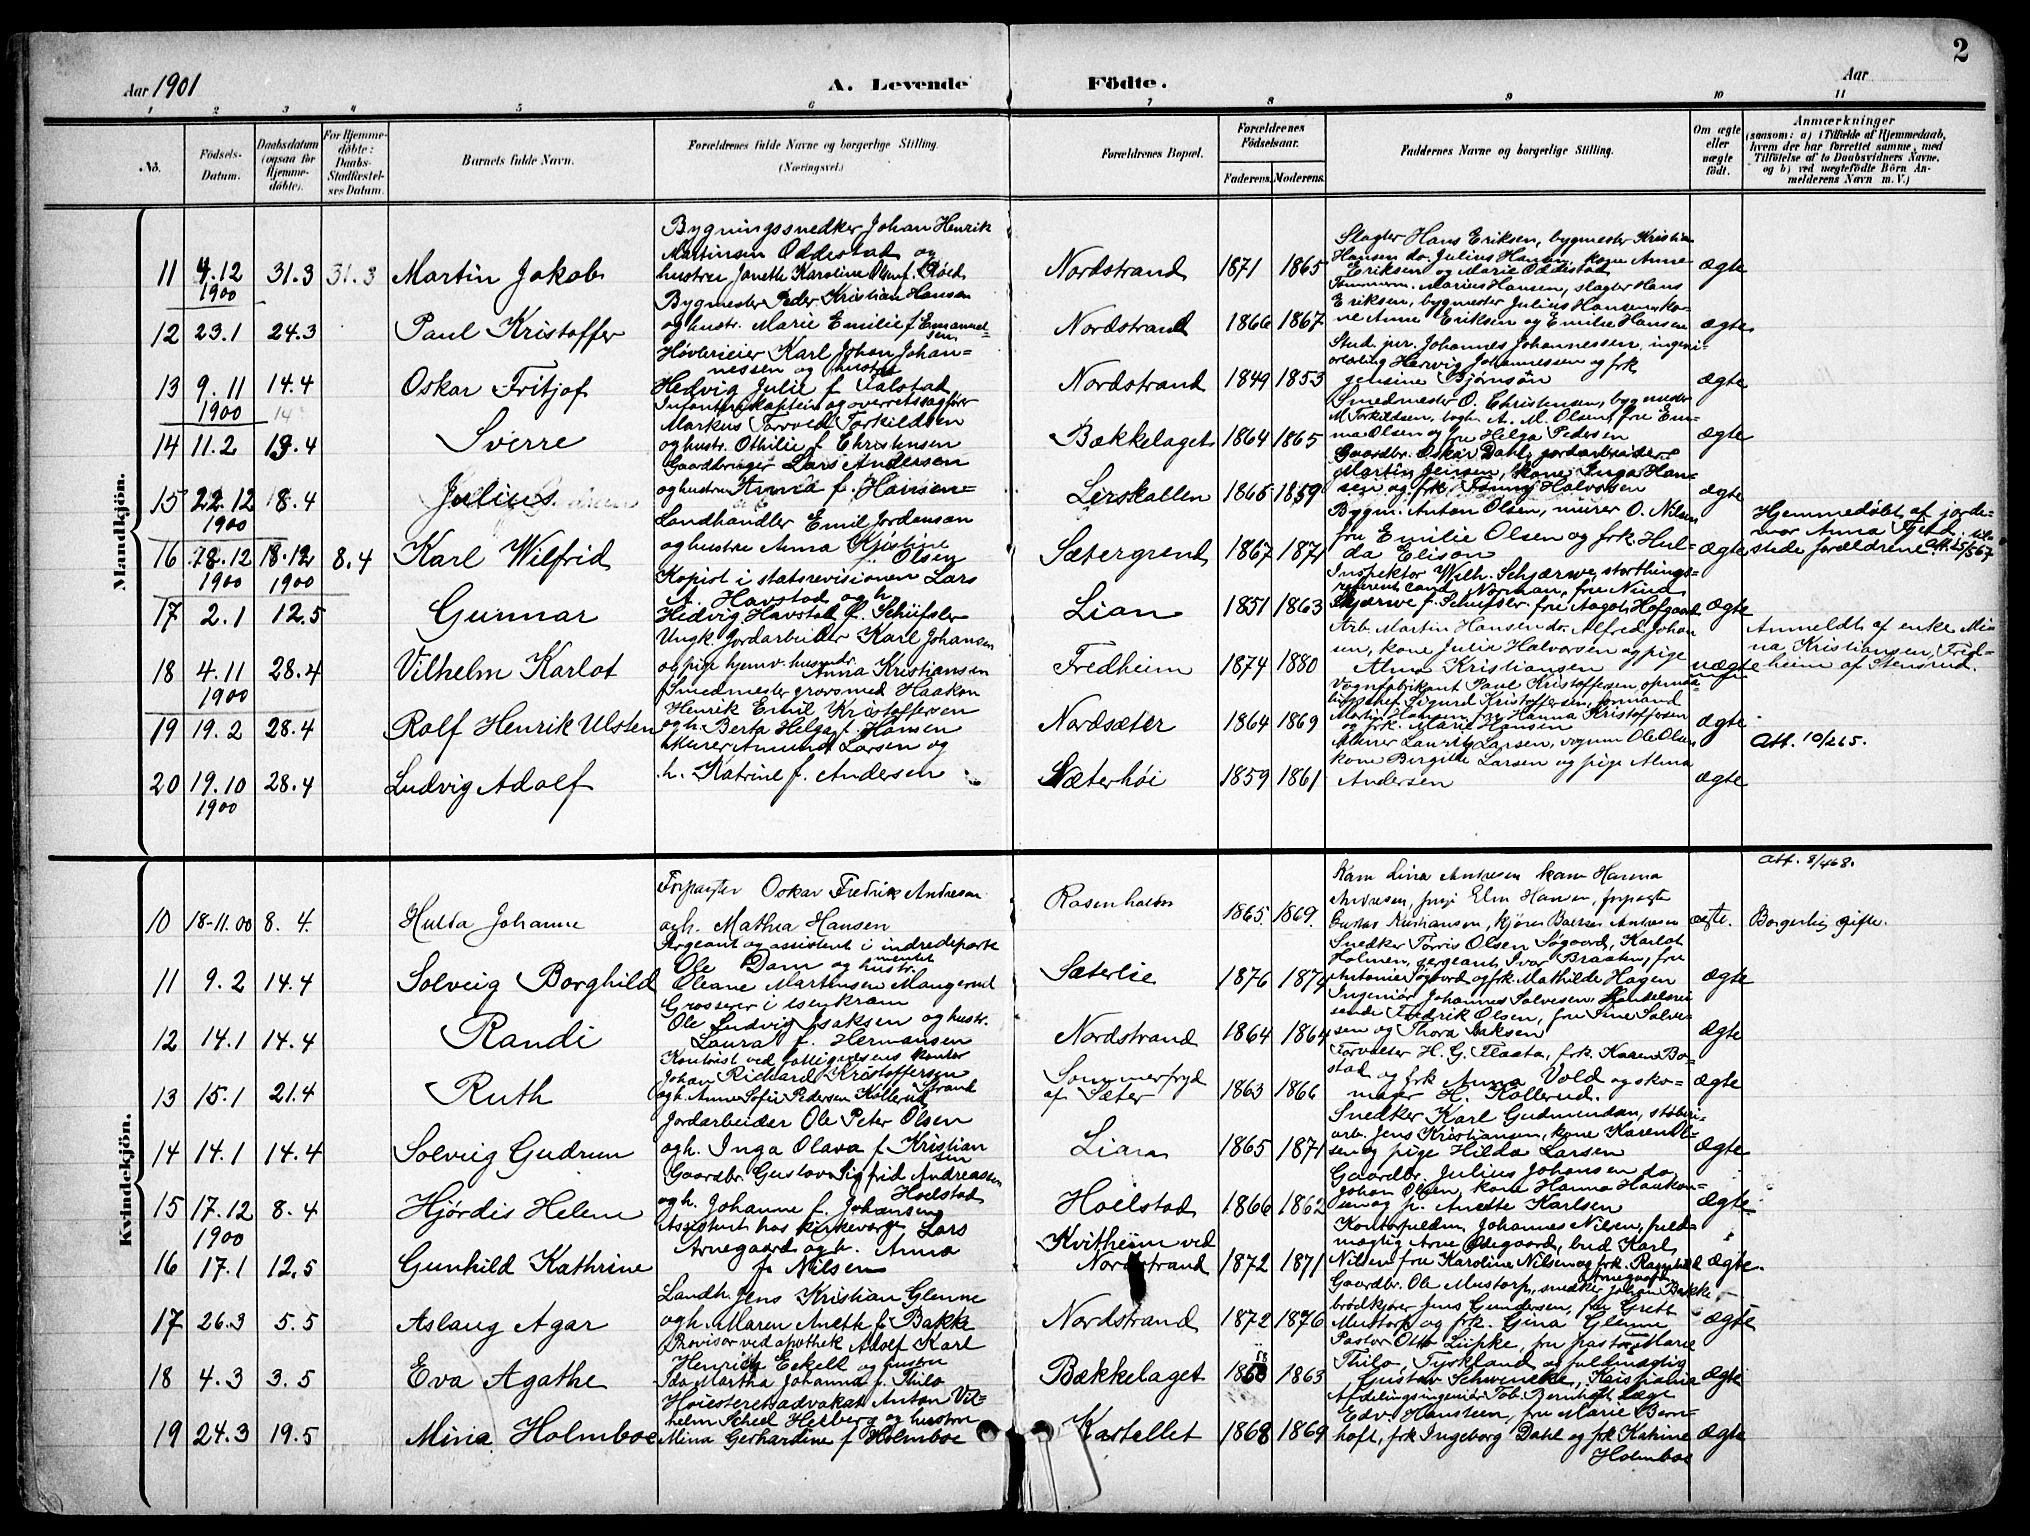 2
Aar 1901
A. Levende Födte.
Aar
1 2 3 4 5 6 7 8 9 10 11
No.
Födsels-Datum.
Daabsdatum (ogsaa for Hjemme-döbte).
For Hjemme-döbte: Daabs-Stadfæstel-ses Datum.
Barnets fulde Navn.
Forældrenes fulde Navne og borgerlige Stilling.
(Næringsvei.)
Forældrenes Bopæl.
Forældrenes Födselsaar.
Faderens. Moderens.
Faddernes Navne og borgerlige Stilling.
Om ægte eller uægte födt.
Anmærkninger
(saasom: a) i Tilfælde af Hjemmedaab, hvem der har forrettet samme, med Tilföielse af to Daabsvidners Navne, og b) ved uægtefödte Börn An-melderens Navn m. V.)
Mandkjön.
11 4.12 1900 31.3 31.3 Martin Jakob
Bygningssnedker Johan Henrik
Martinsen Oddestad og
hustru Janette Karoline Olsen f. Røed
Nordstrand 1871 1865
Slagter Hans Eriksen, bygmester Kristian
Hansen do. Julius Hansen, kone Anne
Eriksen og Marie Oddestad
ægte
12 23.1 24.3 Paul Kristoffer
Bygmester Peder Kristian Hansen
og hustr. Marie Emilie f. Emanuel-
sen
Nordstrand 1866 1867
Tømmerm. Marius Hansen, slagter Hans
Eriksen, bygmester Julius Hansen, ko-
ne Anne Eriksen og Emilie Hansen
ægte
13 9.11 1900 14.4 Oskar Fritjof
Høvlerieier Karl Johan Johan-
nessen og hustru
Hedvig Julie f. Talstad
Nordstrand 1849 1853
Stud. jur. Johannes Johannessen, ingeni-
ørelev Hervig Johannessen og frk
Jensine Bjørnson
ægte
14 11.2 13.4 Sverre
Infanterikaptein og overretssagfører
Markus Torvald Torkildsen
og hustr. Othilie f. Christensen
Bækkelaget 1864 1865
Smedmester O. Christensen, bygmester
M. Torkildsen, bogh. A. M. Olsen, fru Em-
ma Olsen og fru Helga Pedersen
ægte
15 22.12 1900 18.4 Julius
Gaardbruger Lars Andersen
og hustru Anna f. Hansen
Lerskallen 1865 1859
Gaardbr. Oskar Dahl, jordarbeider
Martin Jensen, kone Inga Han-
sen og frk. Fanny Halvorsen
ægte
16 18.12 1900 18.12 1900 8.4 Karl Wilfrid
Landhandler Emil Jordansen
og hustru Anna Kristine
Olsen
Sætergrend 1867 1871
Bygm. Anton Olsen, murer O. Nilsen
fru Emilie Olsen og frk. Hul-
da Elison
ægte
Hjemmedøbt af jorde-
mor Anna Fjeld, tils-
stede forældrene. Att. 25/567
17 2.1 12.5 Gunnar
Kopist i statsrevisionen Lars
A. Havstad og h.
Hedvig Havstad f. Schifsler
Lian 1851 1863
Inspektør Wilh. Schjærwe, storthings-
referent cand. Norman, fru Nina
Skjærwe f. Schifsler, fru Aagot Hofgaard
ægte
18 4.11 1900 28.4 Vilhelm Karlot
Ungk. jordarbeider Karl Johansen
og pige hjemv. husmdr. Anna Kristiansen
Fredheim 1874 1880
Arb. Martin Hansen do. Alfred Johan
sen, kone Julie Halvorsen og pige
Alma Kristiansen
uægte
Anmeldt af enke Mi-
na Kristiansen, Fred-
heim af Stensrud.
19 19.2 28.4 Rolf Henrik Ulsten
Smedmester grovsmed Haakon
Henrik Emil Kristoffersen
og h. Berta Helga f. Hansen
Nordsæter 1864 1869
Vognfabrikant Paul Kristoffersen, opmaa-
lingschef Sigurd Kristoffersen, formand
Martin Hansen, fru Hanna Kristoffersen
og frk. Marie Hansen
ægte
Att. 10/265.
20 19.10 1900 28.4 Ludvig Adolf
Murer Amund Larsen og
h. Katrine f. Andersen
Sæterhøi 1859 1861
Murer Lauritz Larsen, vognm Ole Olsen
kone Birgitte Larsen og pige Alma
Andersen
ægte
Kvindekjön.
10 18-11.00 8.4. Hulda Johanne
Forpagter Oskar Fredrik Andresen
og h. Mathea Hansen
Rosenholm 1865. 1869.
Kone Lina Andresen kone Hanna
Andresen, pige Elen Hansen, forpagter
Gustav Kristiansen, kjører Andresen
ægte.
Att. 8/468.
Borgerlig gifte.
11 9.2 14.4 Solveig Borghild
Sergeant og assistent i indredeparte
mentet
Ole Dam og hustr.
Oleane Martinsen Mangerud
Sæterlie 1876 1874
Snedker Torris Olsen Søgaard, Karlot
Holmen, sergeant Ivar Braaten, fru
Antonie Søgaard og frk. Mathilde Hagen
ægte
12 14.1 14.4 Randi
Grosserer i isenkram
Ole Ludvig Isaksen og hustr.
Laura f. Hermansen
Nordstrand 1864 1864
Ingeniør Johannes Solvesen, Handelsrei
sende Fredrik Olsen, fru Sine Solve-
sen og Thora Isaksen
ægte
13 15.1 21.4 Ruth
Kontorist ved fattigvæsens kontor
Johan Richard Kristoffersen
Strand
og h. Anne Sofie Pedersen Kollerud
Sommerfryd
af Sæter 1863 1866
Forvalter H. G. Flaata, frk. Karen Bo-
stad og frk Anna Vold og sko-
mager H. Kollerud.
ægte
14 14.1 14.4 Solveig Gudrun
Jordarbeider Ole Peter Olsen
og h. Inga Olava f. Kristian
sen
Lian 1865 1871
Snedker Karl Gudmundsen, støberi-
arb. Jens Kristiansen, kone Karen Ol-
sen og pige Hilda Larsen
ægte
15 17.12 1900 8.4 Hjørdis Helene
Gaardbr. Gustav Sigfrid Andreassen
Hoelstad
og h. Johanne f. Johansen
Hoelstad 1866 1862
Gaardbr. Julius Johansen do
Johan Olsen, kone Hanna Haakon-
sen og p. Anette Karlsen
ægte
16 17.1 12.5 Gunhild Kathrine
Assistent hos kirkeverge Lars
Arnegaard og h. Anna
f. Nilsen
Kvitheim ved
Nordstrand 1872 1871
Kontorfuldm. Johannes Nilsen, fuld-
mægtig Arne Ødegaard, bud Karl
Nilsen fru Karoline Nilsen og frk. Ragnhild
Arnegaard
ægte.
17 26.3 5.5 Aslaug Agar
Landh. Jens Kristian Glenne
og h. Maren Aneth f. Bakke
Nordstrand 1872 1876
Gaardbr. Ole Mustorp, snedker Johan Bakke
brødkjører Jens Gundersen, fru Greth
Mustorp og frk. Gina Glenne
ægte
18 4.3 3.5 Eva Agathe
Provisor ved apothek Adolf Karl
Henrich Eckell og hustru
Ida Martha Johanna f. Thilo
Bækkelaget 1858 1863
Pastor Otto Lüpke, fru pastor Marie
Thilo, Tyskland og fuldmægtig
Gustav Schwencke, Kristiania
ægte
19 24.3 19.5 Mina Holmboe
Høiesteretsadvokat Anton Vil-
helm Scheel Herberg og hustru
Mina Gerhardine f. Holmboe
Kastellet 1868 1869
Afdelingsingeniør Tob. Bernhoft læge
Edv. Hansteen, fru Marie Bern-
hoft, frk Ingeborg Dahl og frk Katrine
Holmboe
ægte